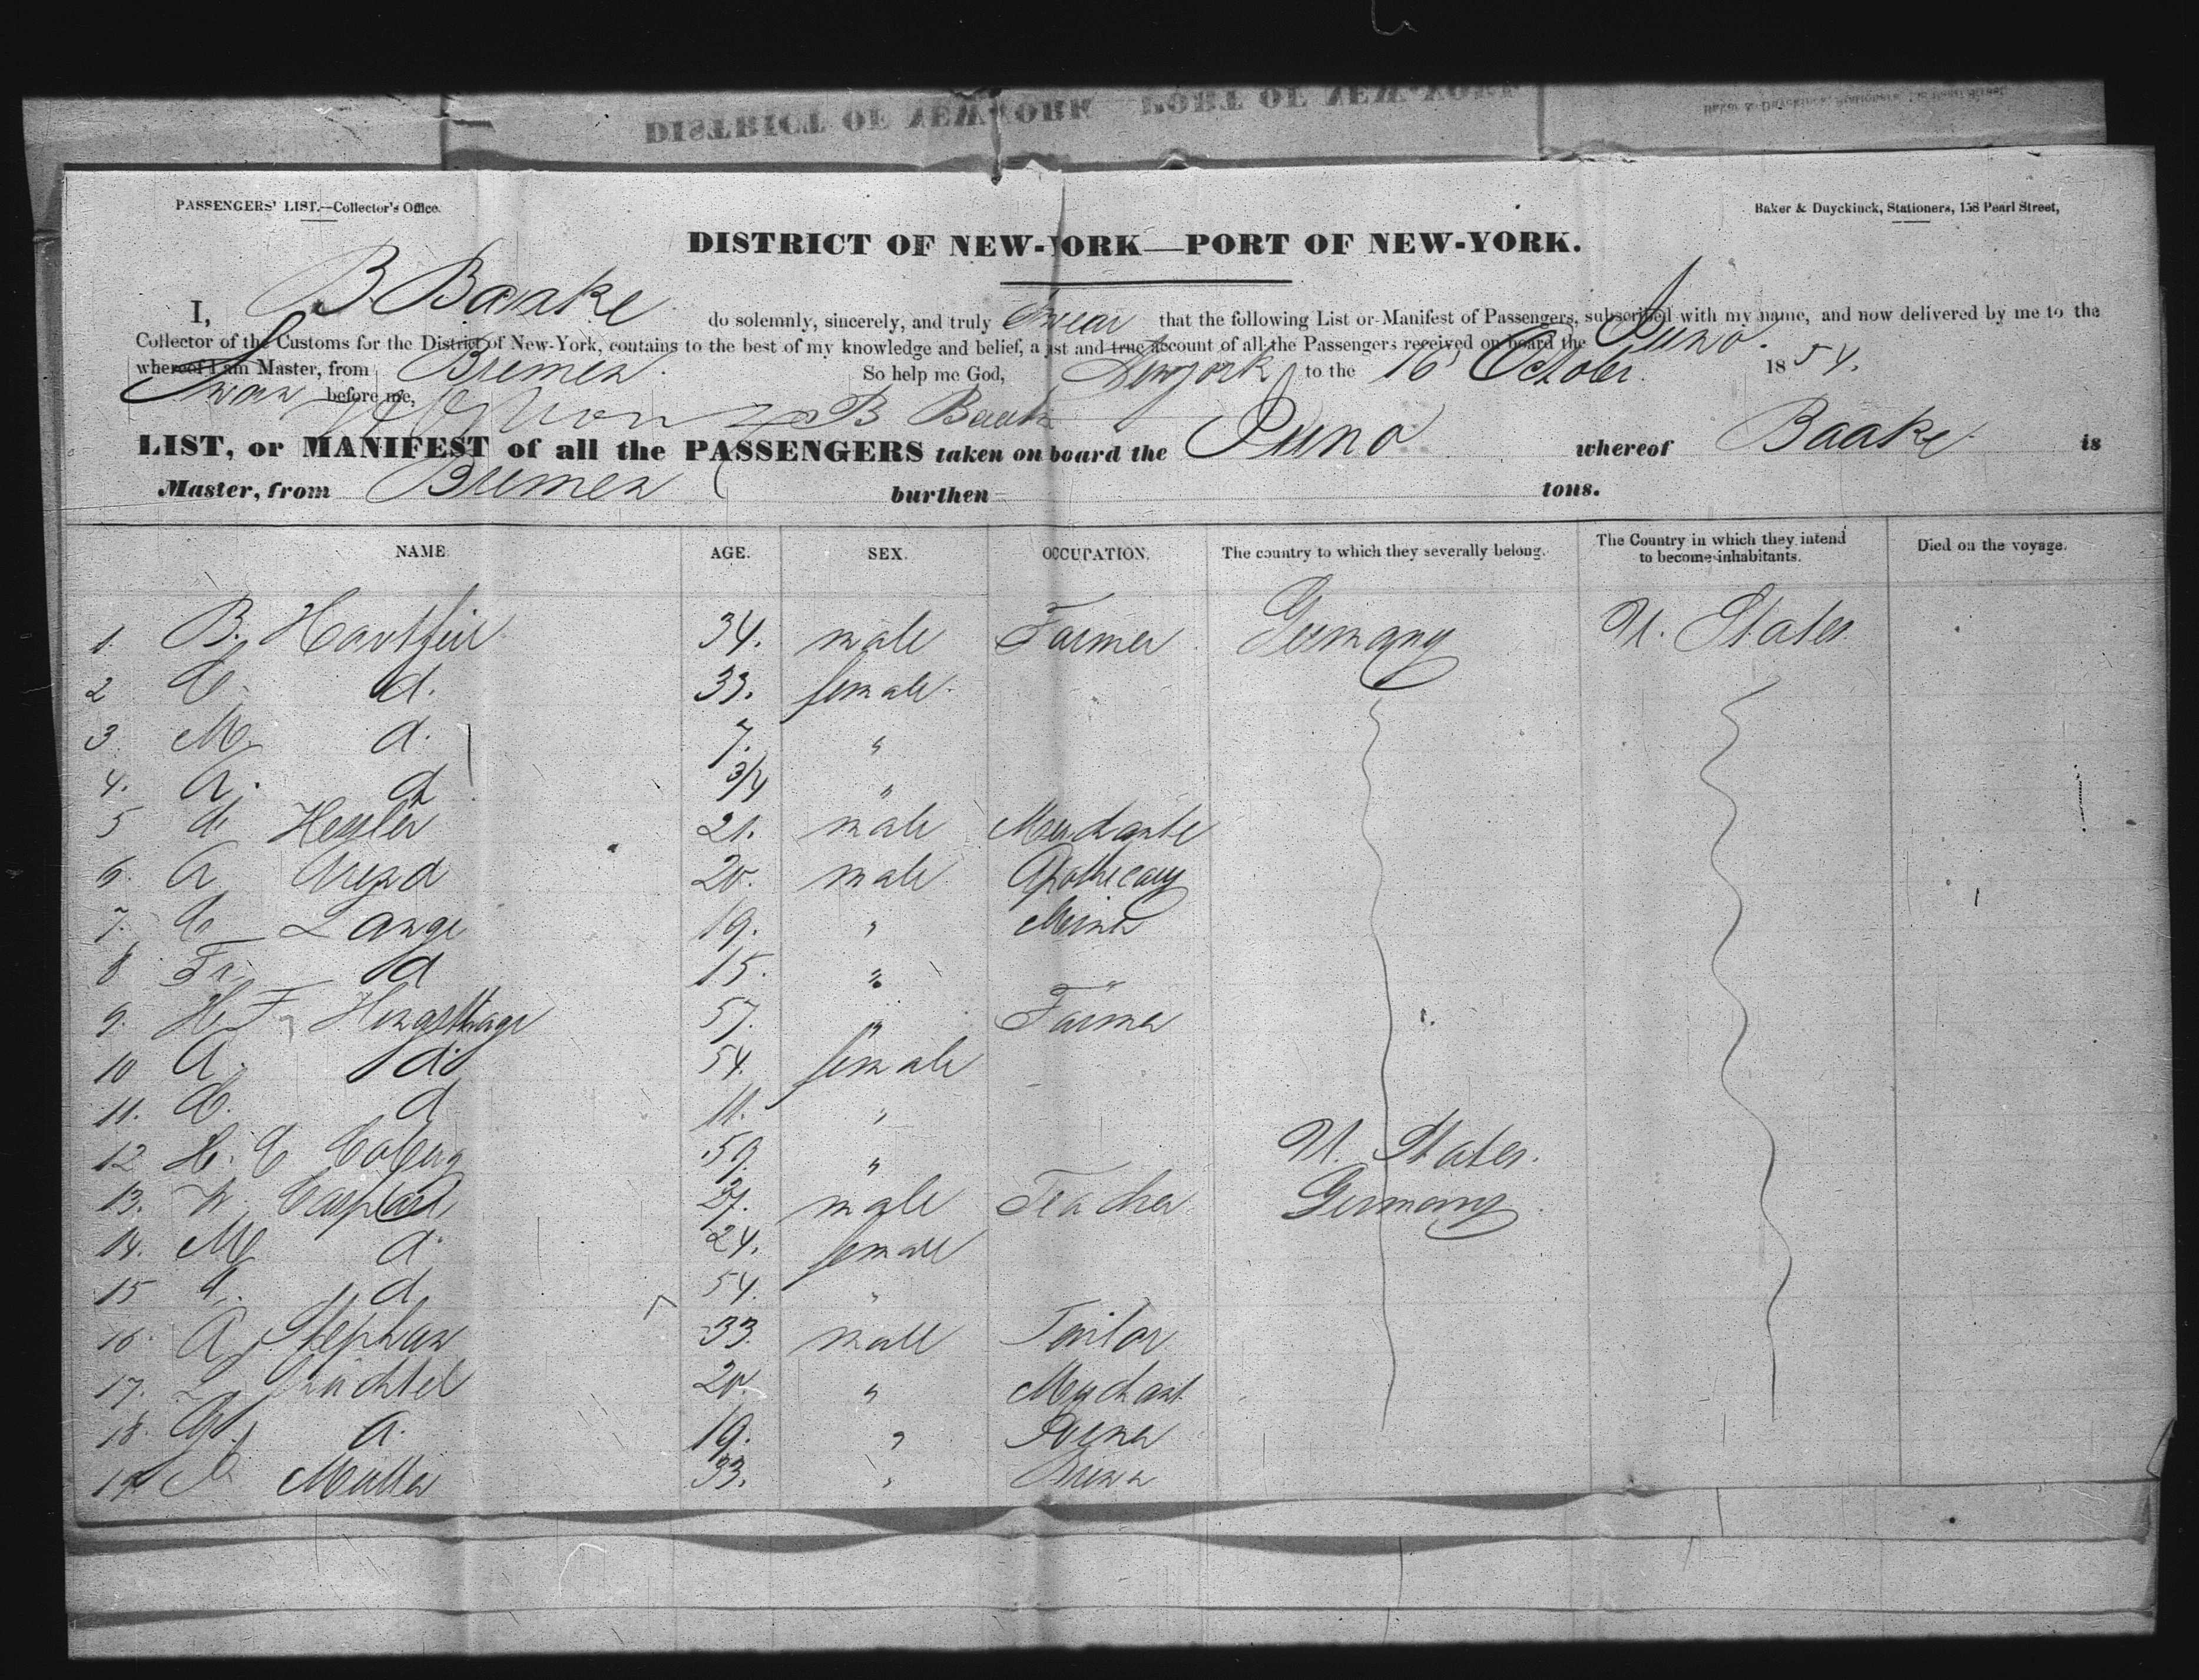 PASSENGERS' LIST.—Collector's Office.
Baker & Duyckinck, Stationers, 158 Pearl Street,
DISTRICT OF NEW-YORK—PORT OF NEW-YORK.
I, B. Baake do solemnly, sincerely, and truly Swear that the following List or Manifest of Passengers, subscribed with my name, and now delivered by me to the
Collector of the Customs for the District of New-York, contains to the best of my knowledge and belief, a just and true account of all the Passengers received on board the Juno.
whereof I am Master, from Bremen. So help me God, Newyork to the 16 October. 1854.
Sworn before me, B Baake
LIST, or MANIFEST of all the PASSENGERS taken on board the Juno whereof Baake is
Master, from Bremen burthen tons.
NAME. AGE. SEX. OCCUPATION. The country to which they severally belong. The Country in which they intend to become inhabitants. Died on the voyage.
1. B. 34. male Farmer Germany U. States
2 C. d. 33. female.
3. M. d. 7. "
4. A. d 3/4 "
5 Hessler 21. male
6. A 20. male Apothecary
7. C Lange 19. "
8 d 15. " "
9. H. F. 57. " Farmer
10 A. d. 54. female
11. C. d 11. "
12 H. C 59. " U. States.
13. 27. male Teacher Germany
14. M d. 24. female
15 d. 54. "
16. A. Stephan 33. male Tailor
17. 20. " Merchant
18. d. 19. "
19 Muller 33. "